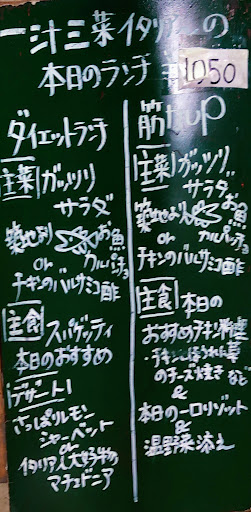 一汁三菜イタリアンの
本日のランチ
1050
ダイエットランチ
主菜 ガッツリ
サラダ
築地より お魚
カルパッチョ
or
チキンのバルサミコ酢
主食 スパゲッティ
本日のおすすめ
デザート
さっぱりレモン
シャーベット
or
イタリア人大好物
マチェドニア
筋力up
主菜 ガッツリ
サラダ
築地より お魚
カルパッチョ
or
チキンのバルサミコ酢
主食 本日の
おすすめチキン料理
チキンとほうれん草
のチーズ焼きなど
&
本日の一口リゾット
&
温野菜添え